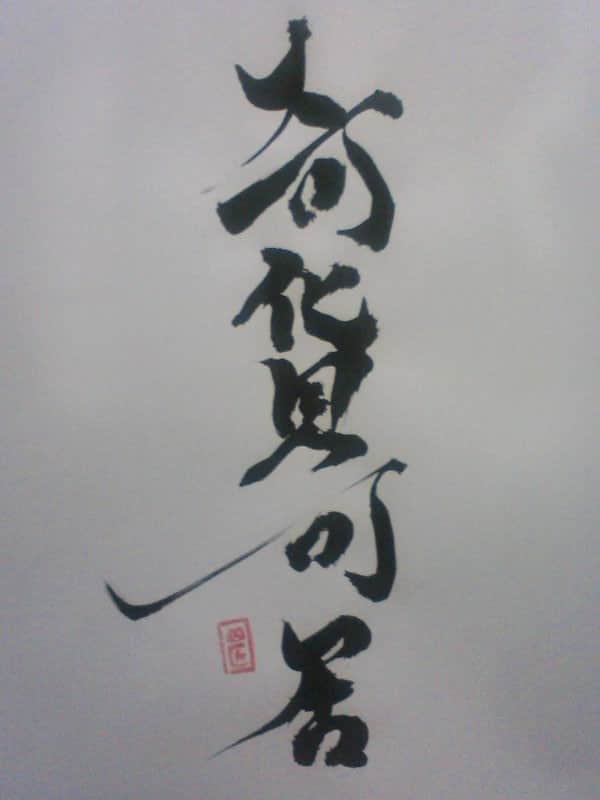 奇貨可居